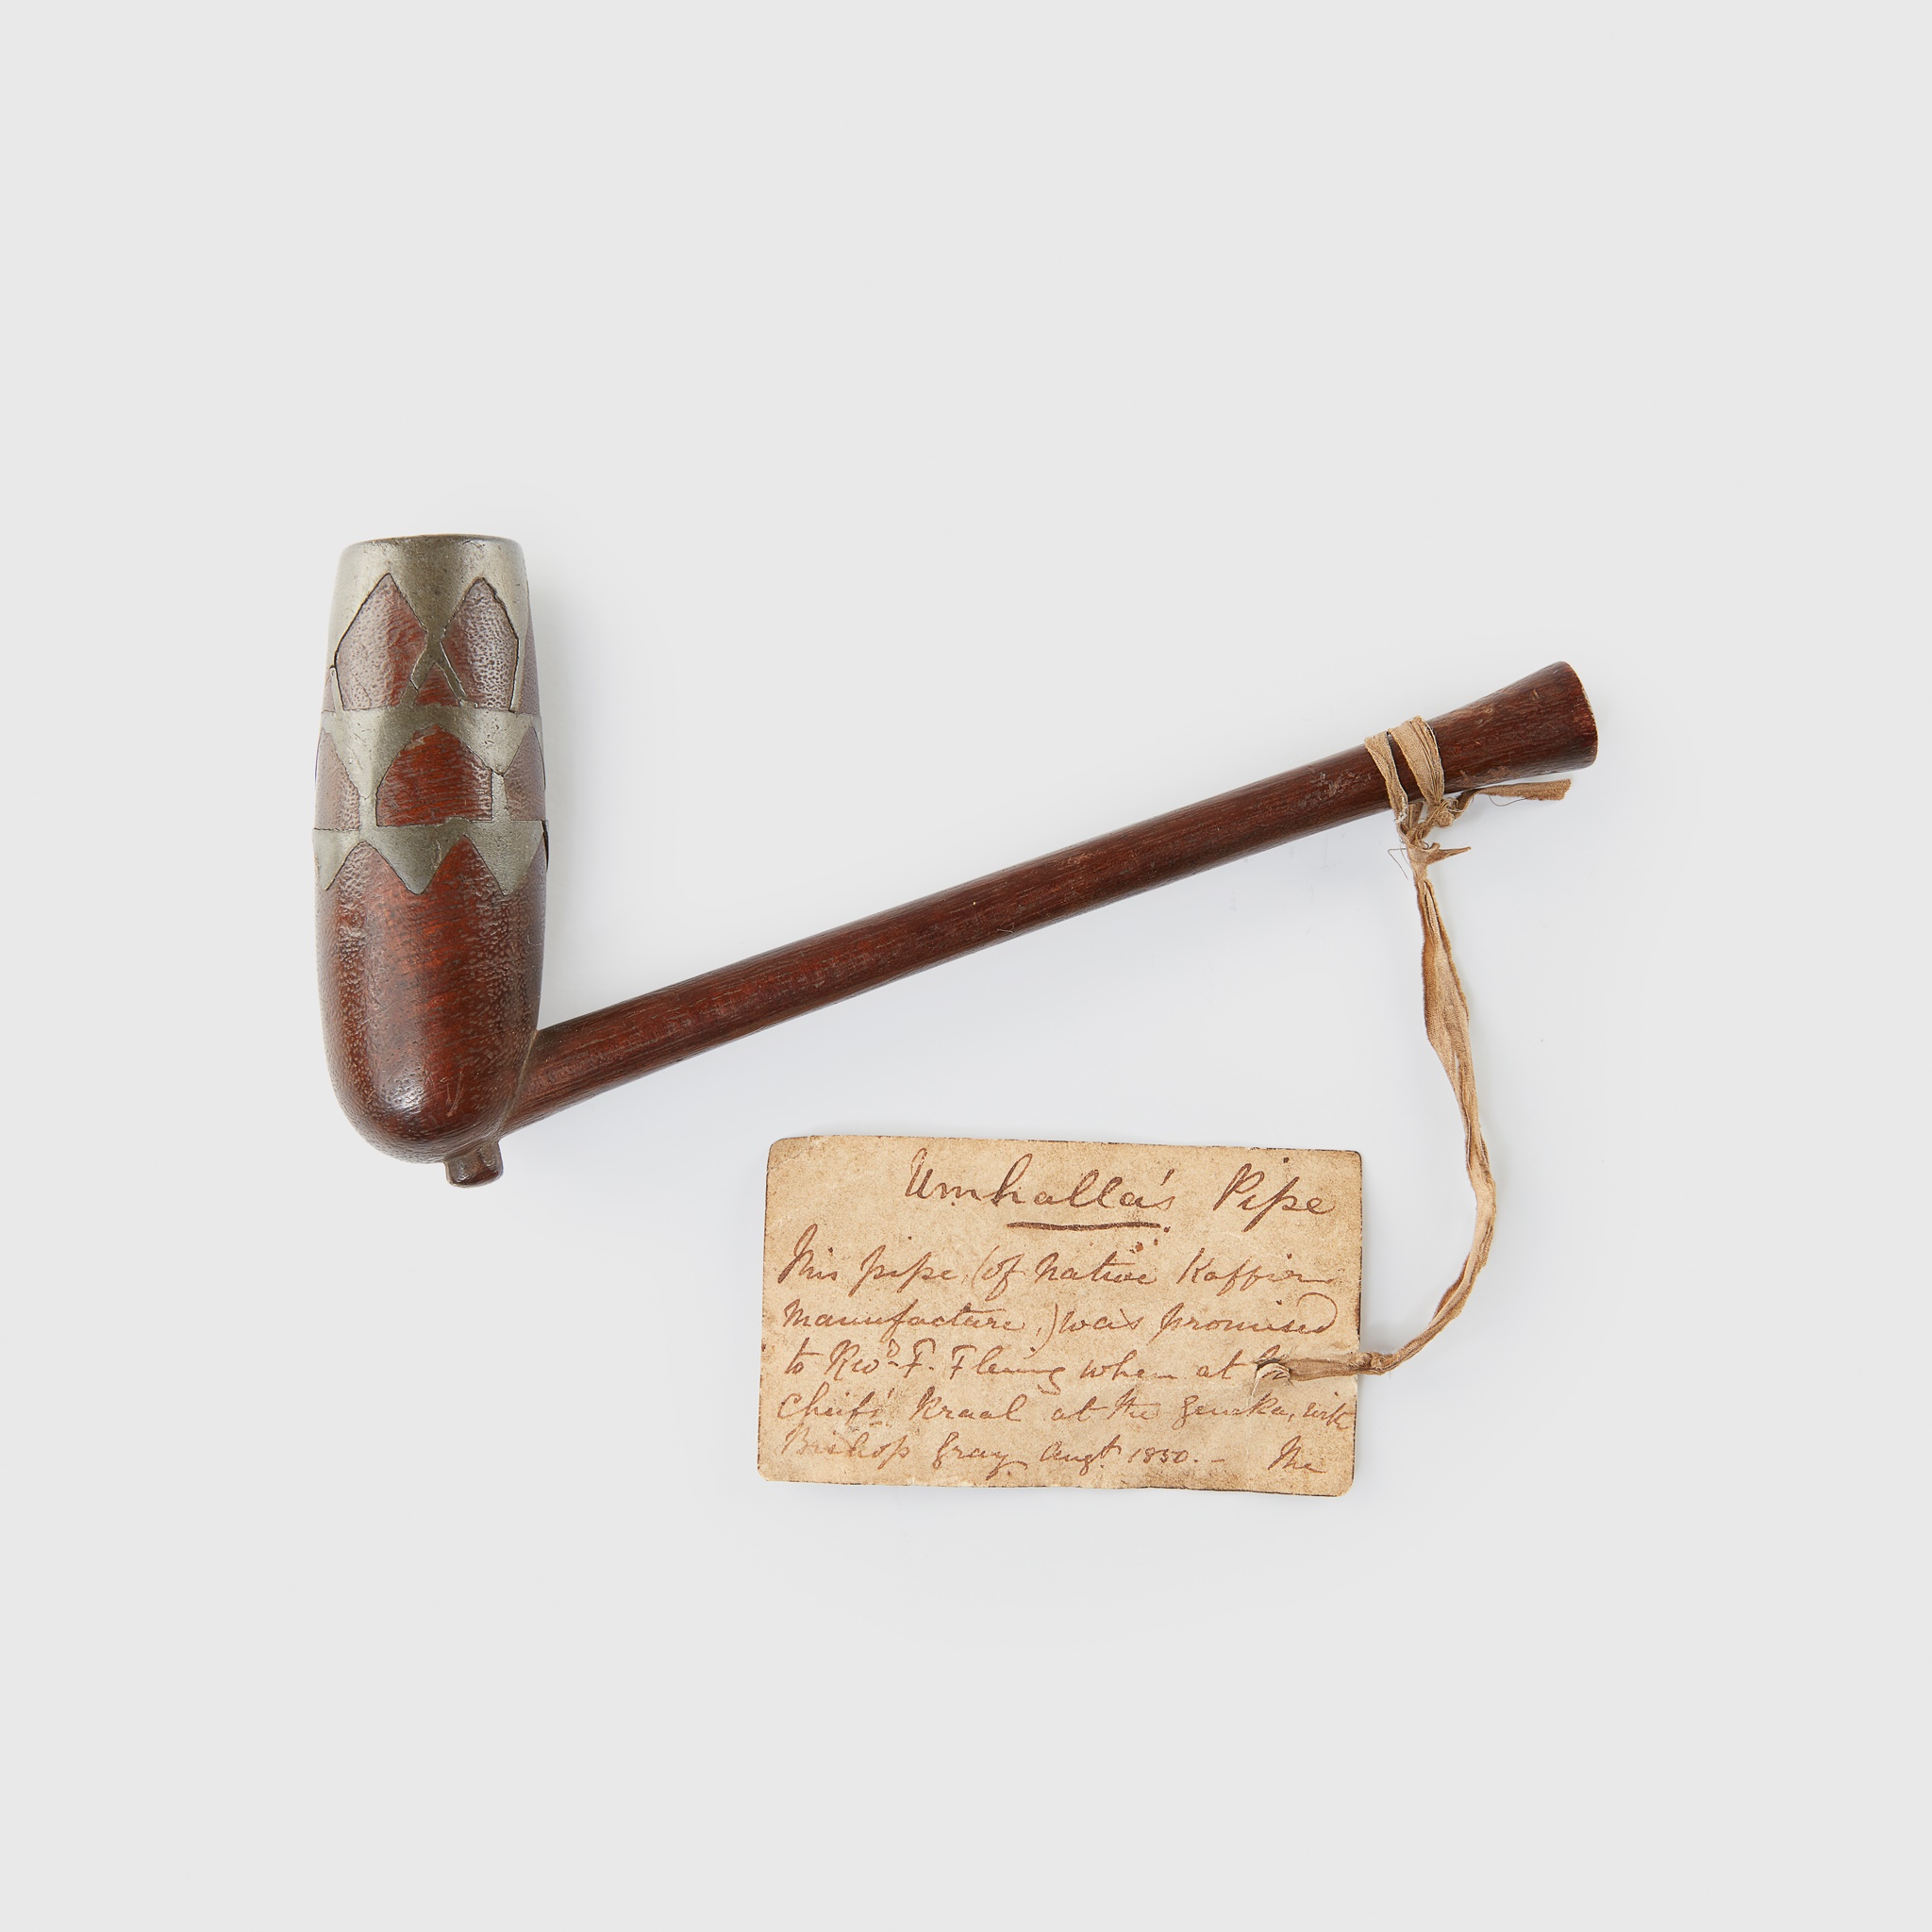 Umhalla's Pipe
This pipe, (of native Kaffir
manufacture,) was promised
to Revd. F. Fleming when at
Chief's Kraal at the Gonuka, with
Bishop Gray Augt. 1850. - The